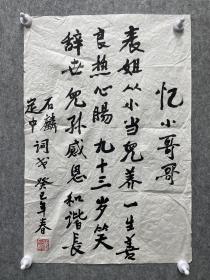 忆小哥哥
表姐从小当儿养一生善
良热心肠九十三岁笑
辞世儿孙感恩和谐长
石麟词戈癸巳年春
定中